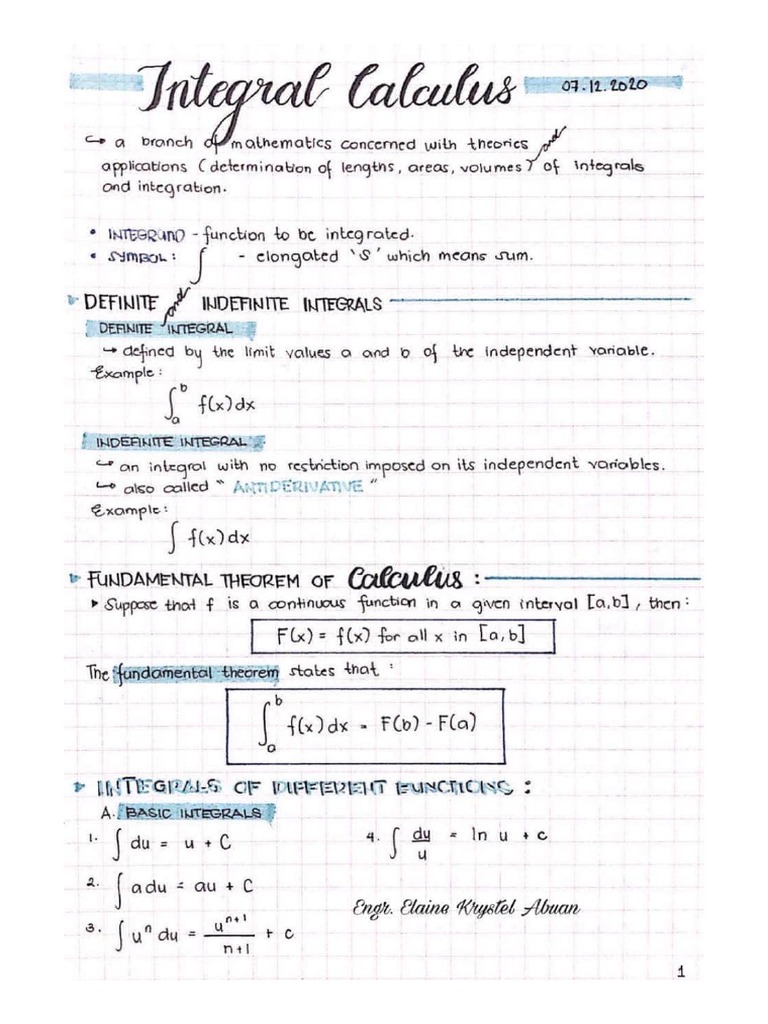 Integral Calculus 07.12.2020
↪ a branch of mathematics concerned with theories and
applications (determination of lengths, areas, volumes) of integrals
and integration.
• INTEGRAND - function to be integrated.
• SYMBOL: ∫ - elongated 'S' which means sum.
DEFINITE and INDEFINITE INTEGRALS
DEFINITE INTEGRAL
↪ defined by the limit values a and b of the independent variable.
Example:
∫_a^b f(x)dx
INDEFINITE INTEGRAL
↪ an integral with no restriction imposed on its independent variables.
↪ also called " ANTIDERIVATIVE "
Example:
∫ f(x)dx
FUNDAMENTAL THEOREM OF Calculus :
▸ Suppose that f is a continuous function in a given interval [a,b], then:
F(x) = f(x) for all x in [a,b]
The fundamental theorem states that :
∫_a^b f(x)dx = F(b) - F(a)
INTEGRALS OF DIFFERENT FUNCTIONS :
A. BASIC INTEGRALS
1. ∫ du = u + C
2. ∫ a du = au + C
3. ∫ u^n du = u^(n+1)/(n+1) + C
4. ∫ du/u = ln u + c
Engr. Elaine Krystel Abuan
1